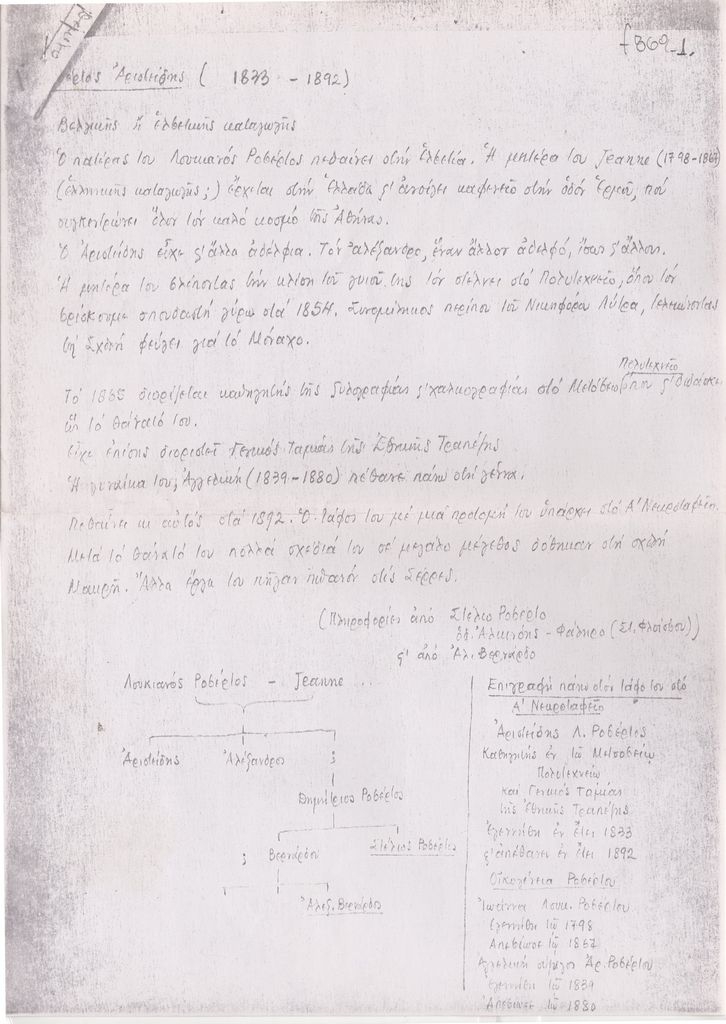 f 369-1.
Ἀριστείδης ( 1833 - 1892)
Βελγικῆς ἤ ἑλβετικῆς καταγωγῆς
Ὁ πατέρας του Λουκιανός Ροβέρτος πεθαίνει στήν Ἑλβετία. Ἡ μητέρα του Jeanne (1798-1867)
(ἑλληνικῆς καταγωγῆς;) ἔρχεται στήν Ἑλλάδα ϛ' ἀνοίγει καφενεῖο στήν ὁδόν Ἑρμοῦ, πού
συγκεντρώνει ὅλον τόν καλό κοσμό τῆς Ἀθήνας.
Ὁ Ἀριστείδης εἶχε ϛ' ἄλλα ἀδέλφια. Τόν Ἀλέξανδρο, ἕναν ἄλλον ἀδελφό, ἴσως ϛ' ἄλλους.
Ἡ μητέρα του βλέποντας τήν κλίση τοῦ γυιοῦ της τόν στέλνει στό Πολυτεχνεῖο, ὅπου τόν
βρίσκουμε σπουδαστή γύρω στά 1854. Συνομήλικος περίπου τοῦ Νικηφόρου Λύτρα, τελειώνοντας
τή Σχολή φεύγει γιά τό Μόναχο.
Πολυτεχνεῖο
Τό 1865 διορίζεται καθηγητής τῆς ξυλογραφίας ϛ' χαλκογραφίας στό Μετσόβειο ὅπου ϛ' διδάσκει
ὥς τό θάνατό του.
Εἶχε ἐπίσης διοριστεῖ Γενικός Ταμίας τῆς Ἐθνικῆς Τραπέζης
Ἡ γυναίκα του, Ἀγγελική (1839-1880) πέθανε πάνω στή γέννα.
Πεθαίνει κι αὐτός στά 1892. Ὁ τάφος του μέ μιά προτομή του ὑπάρχει στό Α' Νεκροταφεῖο.
Μετά τό θάνατό του πολλά σχέδιά του σέ μεγάλο μέγεθος δόθηκαν στή σχολή
Μακρῆ. Ἄλλα ἔργα του πῆγαν πιθανόν στίς Σέρρες.
(Πληροφορίες ἀπό Στέλιο Ροβέρτο
ὁδ. Ἀλκυόνης - Φάληρο (Στ. Φλοίσβου))
ϛ' ἀπό Ἀλ. Βερνάρδο
Λουκιανός Ροβέρτος - Jeanne ...
Ἀριστείδης Ἀλέξανδρος ;
Δημήτριος Ροβέρτος
; Βερνάρδου Στέλιος Ροβέρτος
Ἀλεξ. Βερνάρδος
Ἐπιγραφή πάνω στόν τάφο του στό
Α' Νεκροταφεῖο
Ἀριστείδης Λ. Ροβέρτος
Καθηγητής ἐν τῷ Μετσοβείῳ
Πολυτεχνείῳ
καί Γενικός Ταμίας
τῆς Ἐθνικῆς Τραπέζης
Ἐγεννήθη ἐν ἔτει 1833
ϛ' ἀπέθανεν ἐν ἔτει 1892
Οἰκογένεια Ροβέρτου
Ἰωάννα Λουκ. Ροβέρτου
Ἐγεννήθη τῷ 1798
Ἀπεβίωσε τῷ 1867
Ἀγγελική σύζυγος Ἀρ. Ροβέρτου
ἐγεννήθη τῷ 1839
Ἀπεβίωσε τῷ 1880